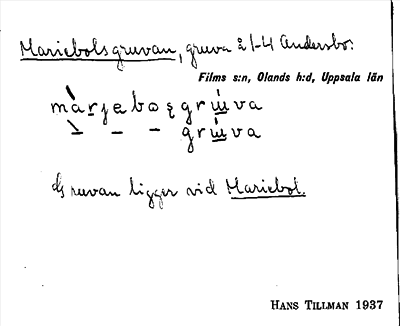 Mariebolsgruvan, gruva å 1-4 Andersbo:
Films s:n, Olands h:d, Uppsala län
màrjeboʂgrɯ́va
– – – grɯ́va
Gruvan ligger vid Mariebol.
HANS TILLMAN 1937